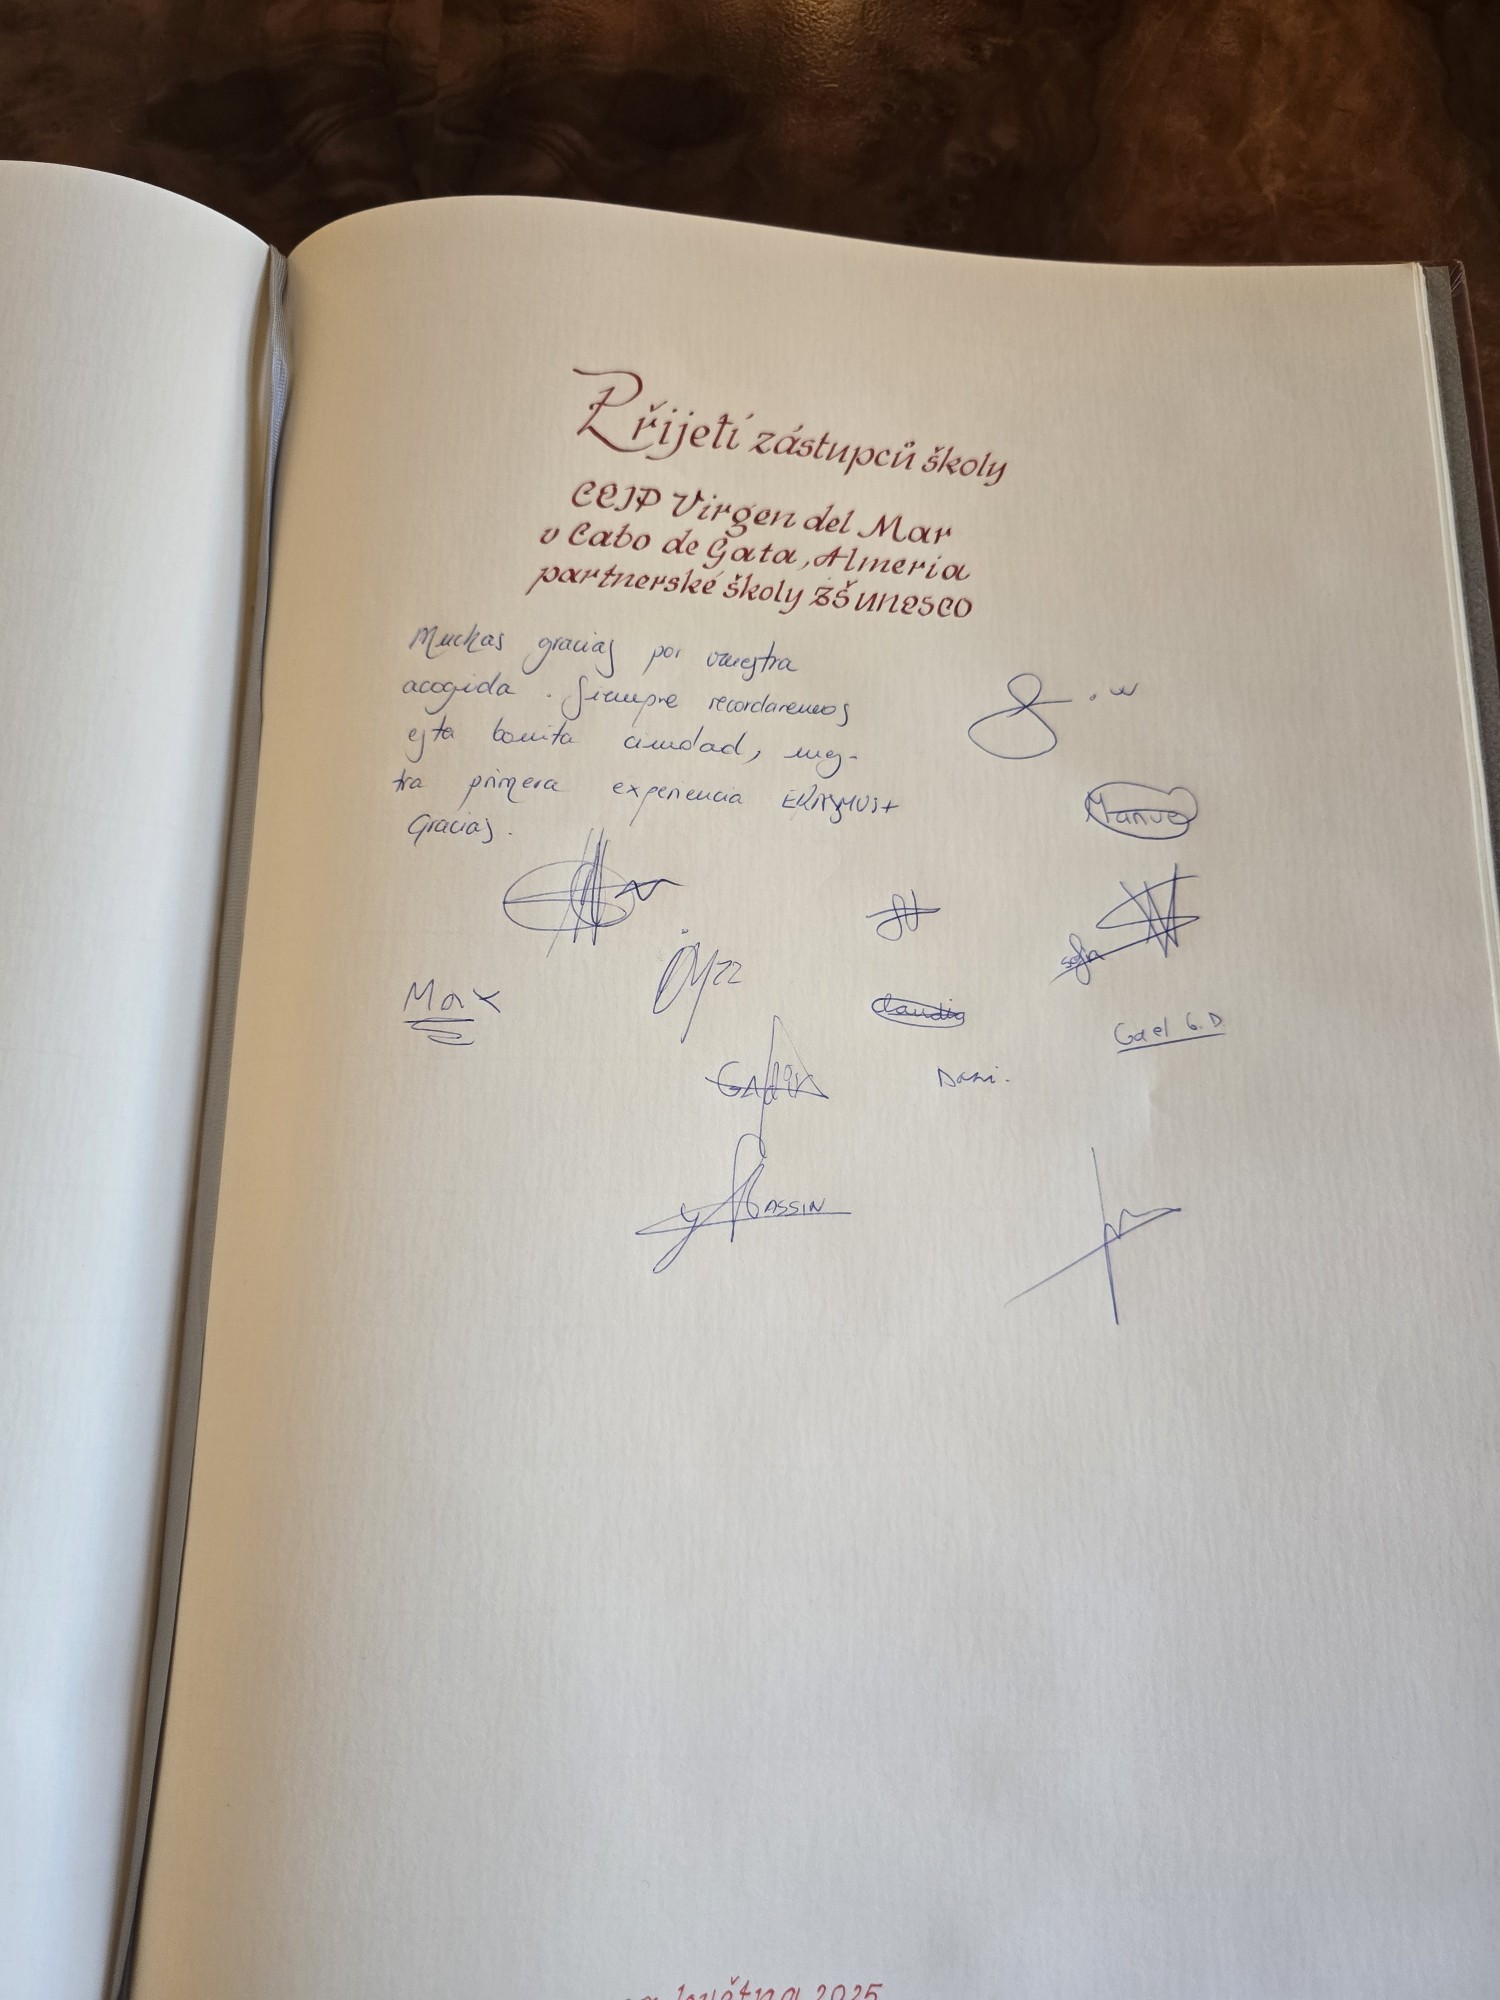 Přijetí zástupců školy
CEIP Virgen del Mar
v Cabo de Gata, Almeria
partnerské školy ZŠ UNESCO
Muchas gracias por vuestra
acogida. Siempre recordaremos
esta bonita ciudad, nues-
tra primera experiencia ERASMUS+
Gracias.
Manuel
sofia
Max
Claudia
Gael G.D.
Dani.
YASSIN
května 2025